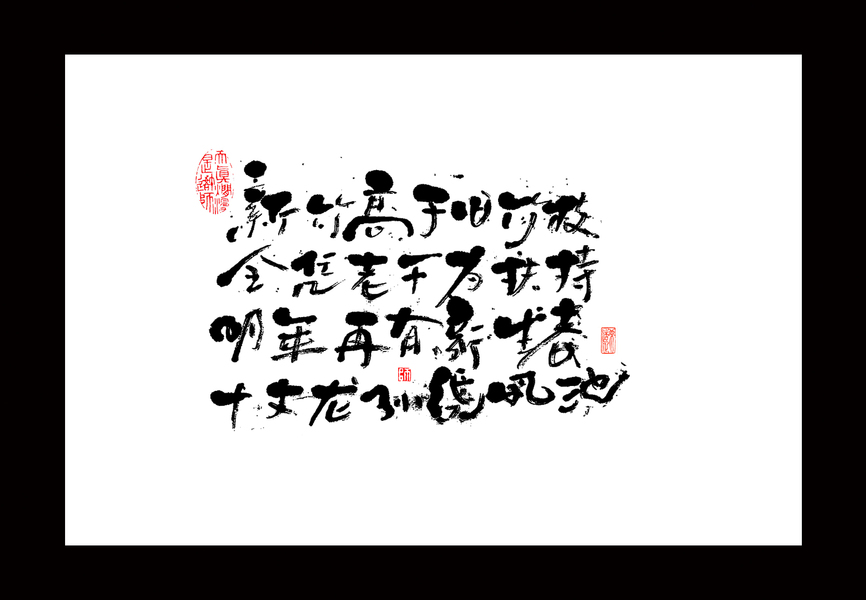 新竹高于旧竹枝
全凭老干为扶持
明年再有新生者
十丈龙孙绕凤池